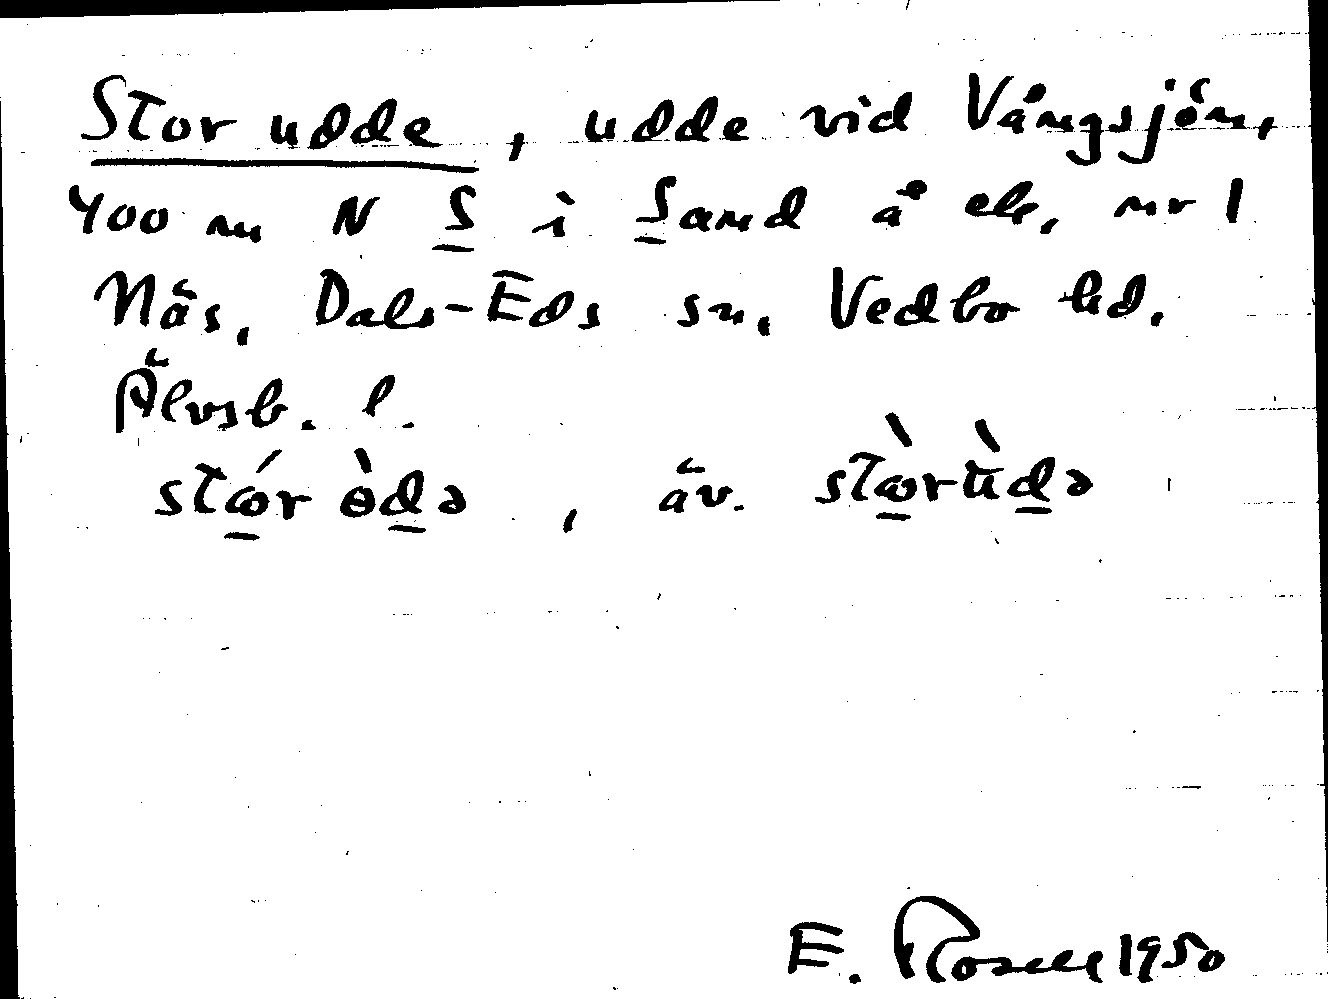 Stor udde, udde vid Vångsjön,
400 m N S i Sand å ek. nr 1
Näs, Dals-Eds sn, Vedbo hd.
Älvsb. l.
stǿr òdə, äv. stœ̀rùdə
E. Rosell 1950